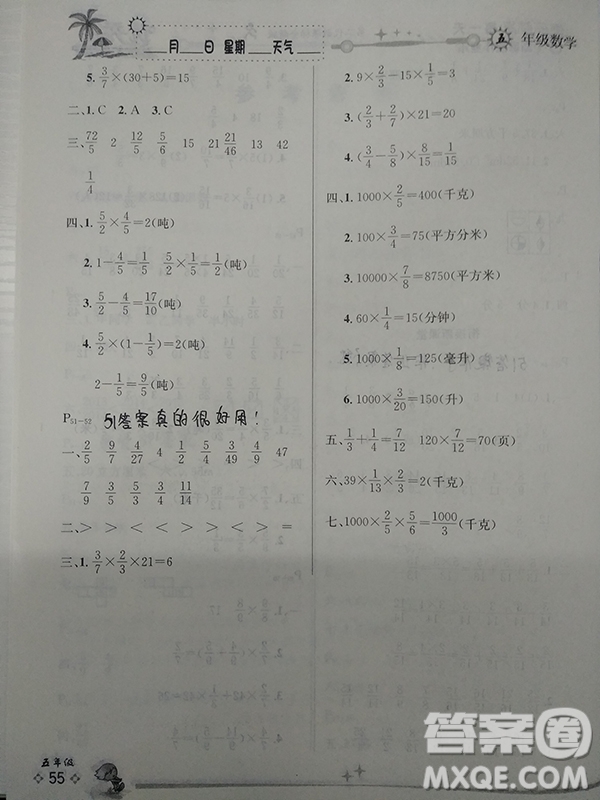 月 日 星期 天气
五 年级数学
5. 3/7×(30+5)=15
二、1. C 2. A 3. C
三、72/5 2 12/5 5/6 15 21 21/46 13 42
1/4
四、1. 5/2×4/5=2(吨)
2. 1-4/5=1/5 5/2×1/5=1/2(吨)
3. 5/2-4/5=17/10(吨)
4. 5/2×(1-4/5)=1/2(吨)
2-1/5=9/5(吨)
P51-52 51答案真的很好用!
一、2/5 9/7 4/27 4 1/2 5/4 3/49 4/9 47
7/9 9/5 5/3 4/3 11/14
二、> > < < > > > > =
三、1. 3/7×2/3×21=6
2. 9×2/3-15×1/5=3
3. (2/3+2/7)×21=20
4. (3/4-5/8)×8/15=1/15
四、1. 1000×2/5=400(千克)
2. 100×3/4=75(平方分米)
3. 10000×7/8=8750(平方米)
4. 60×1/4=15(分钟)
5. 1000×1/8=125(毫升)
6. 1000×3/20=150(升)
五、1/3+1/4=7/12 120×7/12=70(页)
六、39×1/13×2/3=2(千克)
七、1000×2/5×5/6=1000/3(千克)
五年级
55
答案圈
MXQE.COM